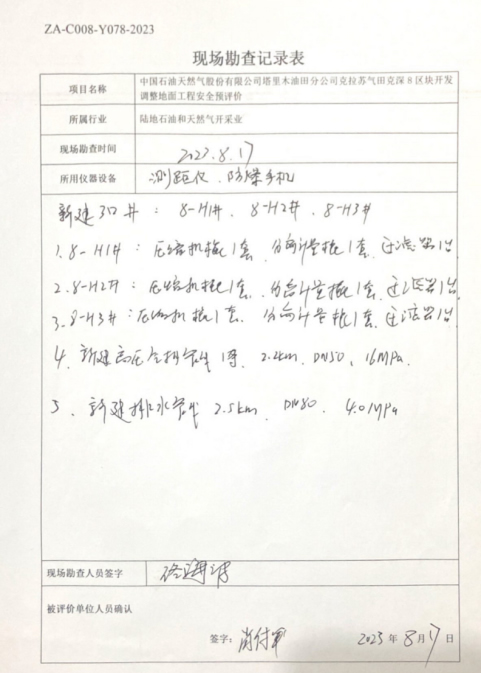 ZA-C008-Y078-2023
现场勘查记录表
项目名称
中国石油天然气股份有限公司塔里木油田分公司克拉苏气田克深8区块开发
调整地面工程安全预评价
所属行业
陆地石油和天然气开采业
现场勘查时间
2023.8.17
所用仪器设备
测距仪、防爆手机
新建3口井：8-H1井、8-H2井、8-H3井
1.8-H1井：压缩机撬1套、分离计量撬1套、过滤器1台
2.8-H2井：压缩机撬1套、分离计量撬1套、过滤器1台
3.8-H3井：压缩机撬1套、分离计量撬1套、过滤器1台
4、新建高压气 管线 2.2km、DN50、16MPa.
5、新建排水管线 2.5km、DN80、4.0MPa
现场勘查人员签字
被评价单位人员确认
签字：肖付军
2023年8月17日